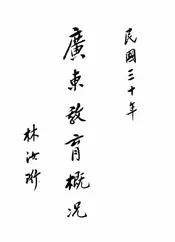 民國三十年
廣東教育概况
林汝珩